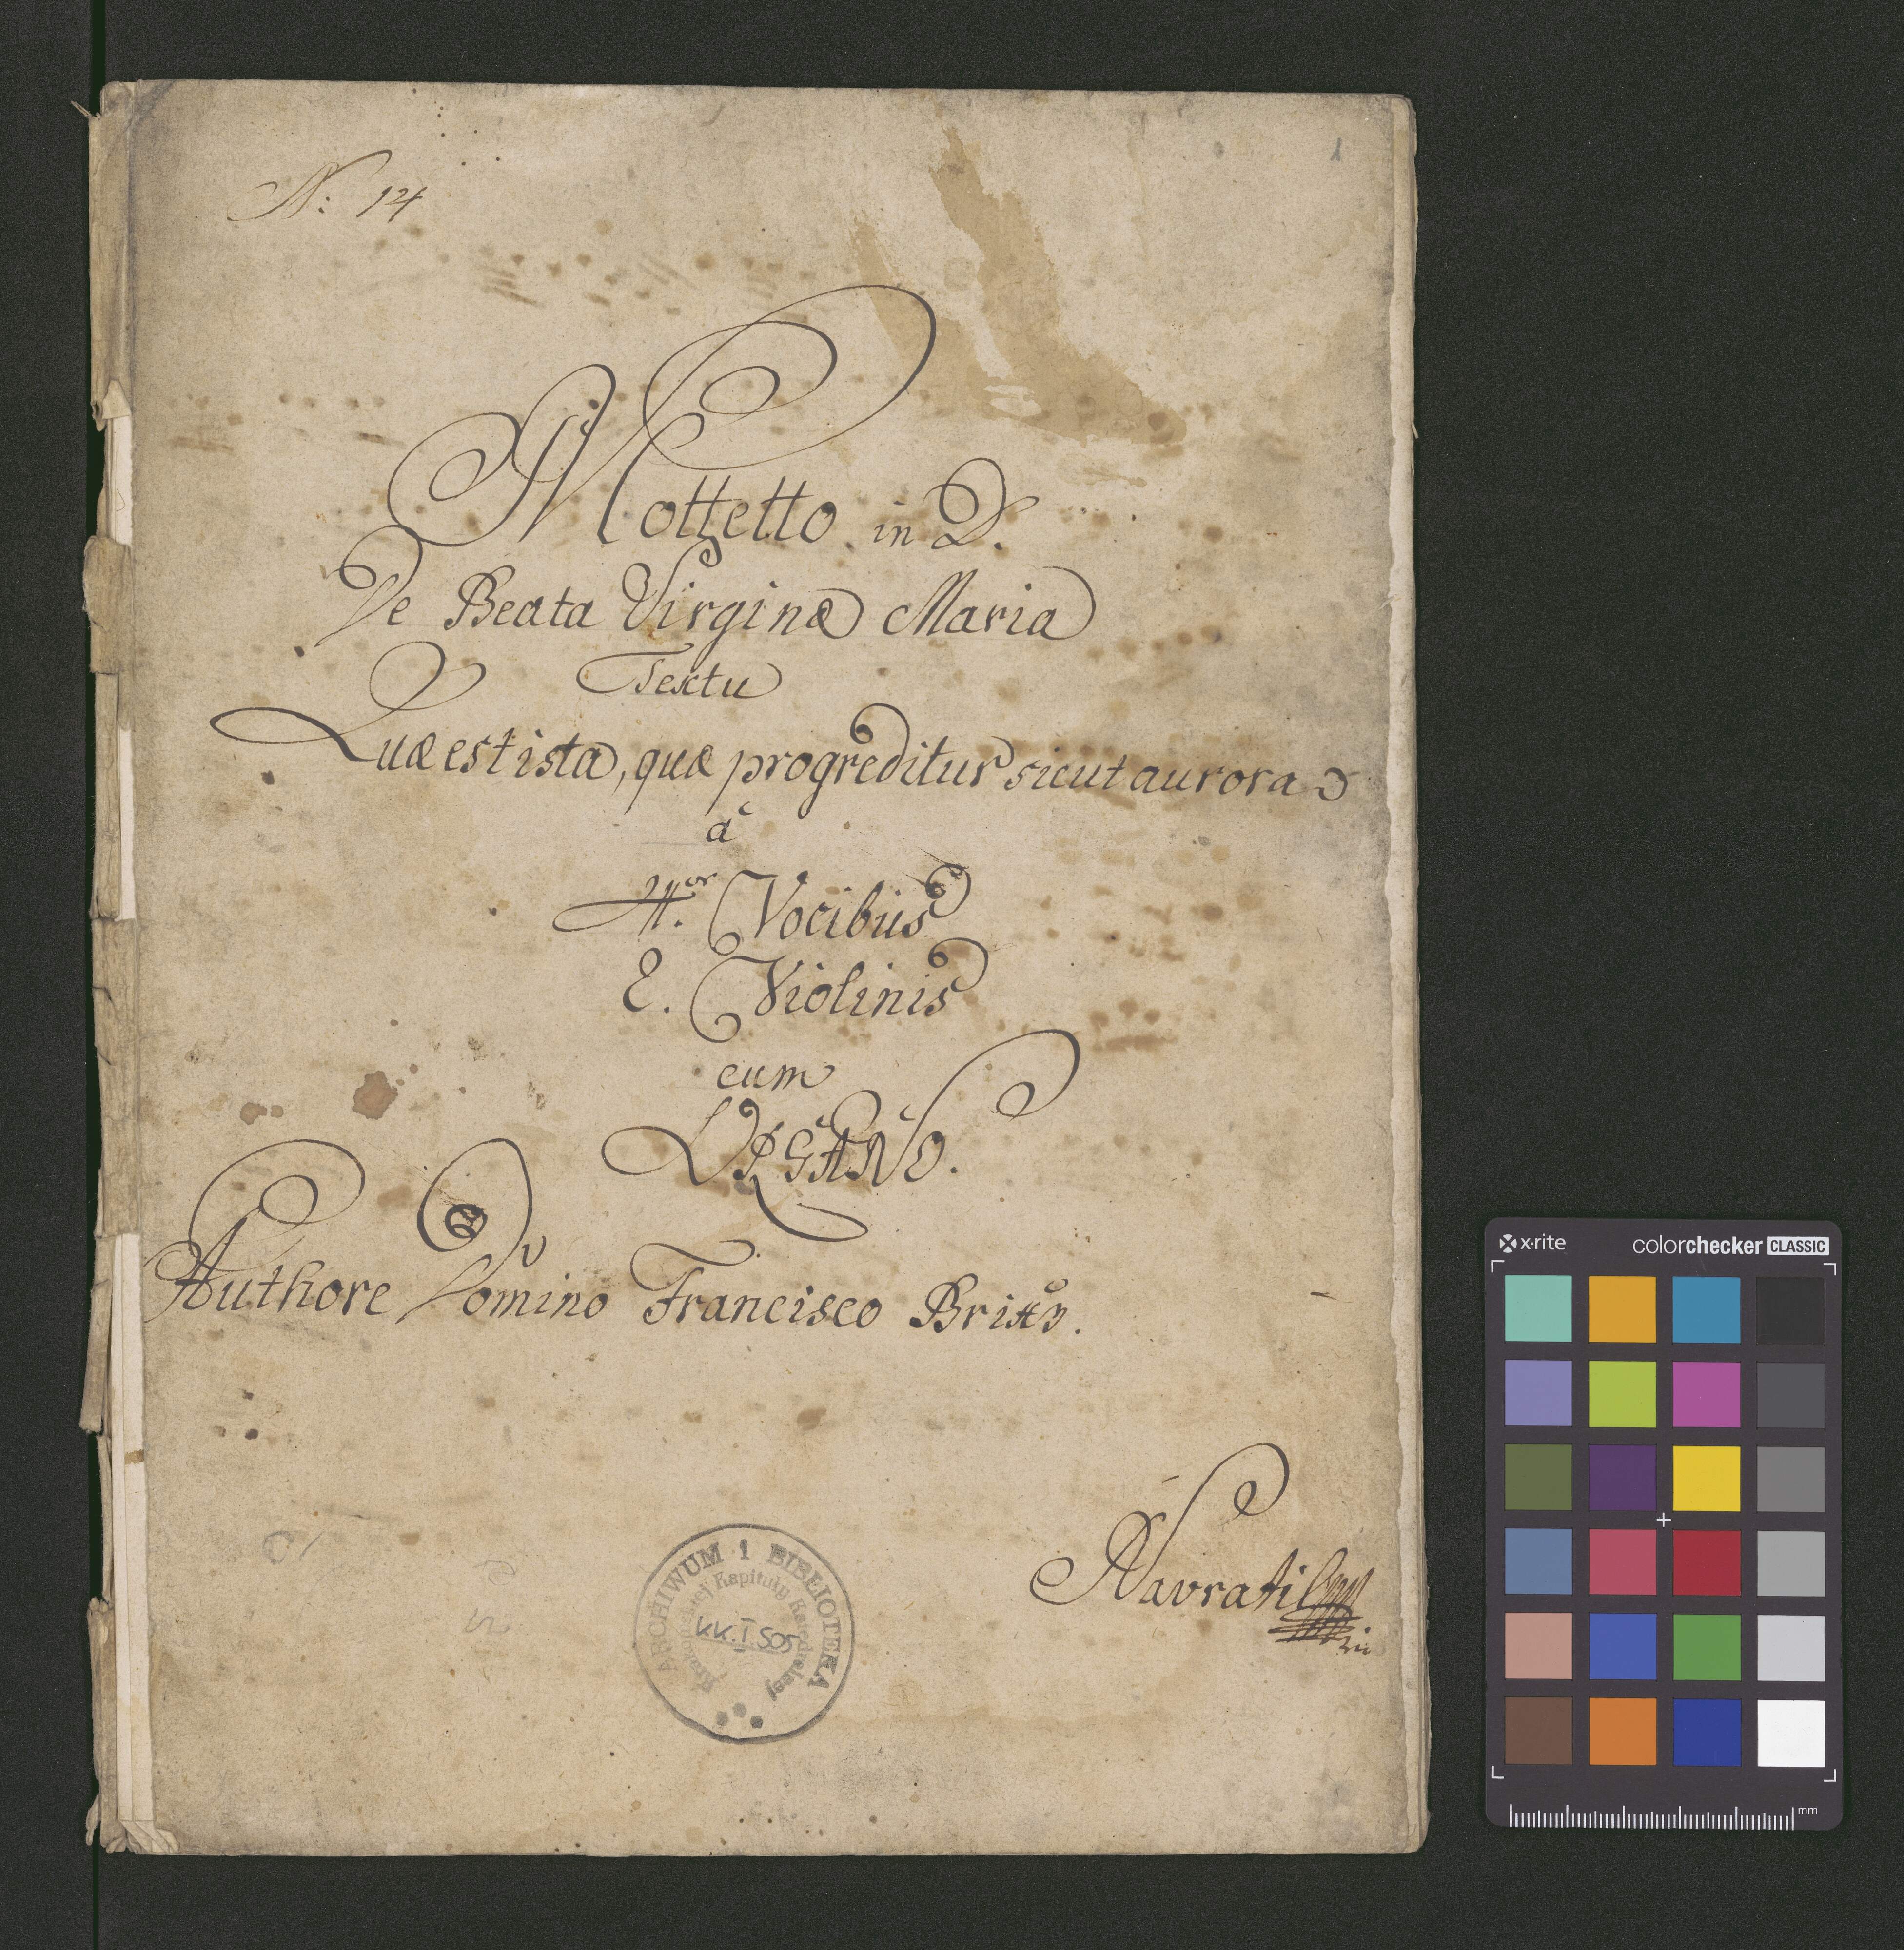 1
N: 14
Mottetto in D.
De Beata Virginæ Maria
Textu
Quæ est ista, quæ progreditur sicut aurora
à
4.or Vocibus
2. Violinis
cum
ORGANO.
Authore Domino Francisco Brixy.
Navratil
ARCHIWUM I BIBLIOTEKA
Krakowskiej Kapituły Katedralnej
KK.I 505
x·rite
colorchecker CLASSIC
mm